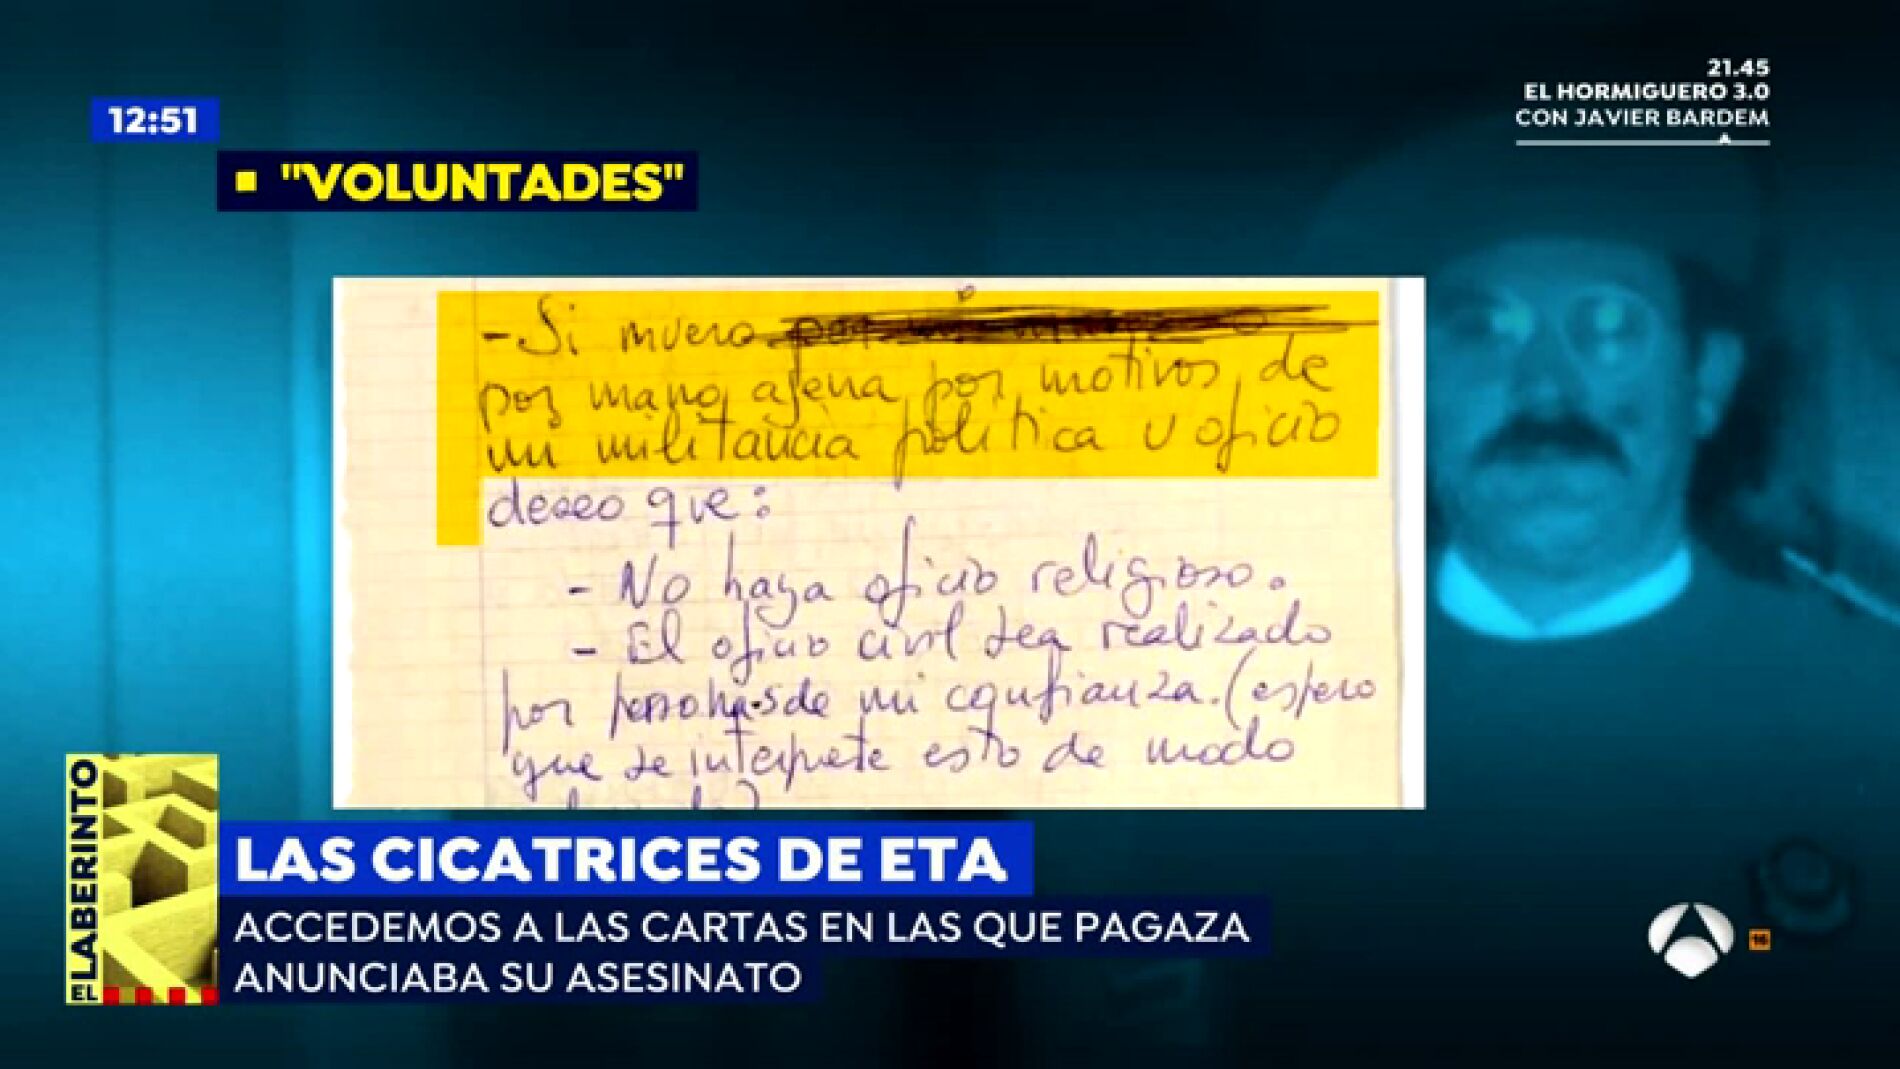 21.45
EL HORMIGUERO 3.0
CON JAVIER BARDEM
12:51
"VOLUNTADES"
- Si muero
por mano ajena por motivos de
mi militancia política u oficio
deseo que:
- No haya oficio religioso.
- El oficio civil sea realizado
por personas de mi confianza. (espero
que se interprete esto de modo
EL LABERINTO
LAS CICATRICES DE ETA
ACCEDEMOS A LAS CARTAS EN LAS QUE PAGAZA
ANUNCIABA SU ASESINATO
16